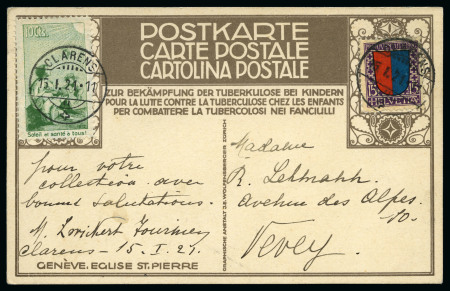 POSTKARTE
CARTE POSTALE
CARTOLINA POSTALE
ZUR BEKÄMPFUNG DER TUBERKULOSE BEI KINDERN
POUR LA LUTTE CONTRE LA TUBERCULOSE CHEZ LES ENFANTS
PER COMBATERE LA TUBERCOLOSI NEI FANCIULLI
10 Cts
CLARENS
15.I.21.11
Soleil et santé à tous!
15 15
HELVETIA
pour votre
collection avec
bonnes salutations.
M.
Clarens - 15_I_21.
GENÈVE. EGLISE ST. PIERRE
Madame
R. Lehmann
Avenue des Alpes
10.
Vevey.